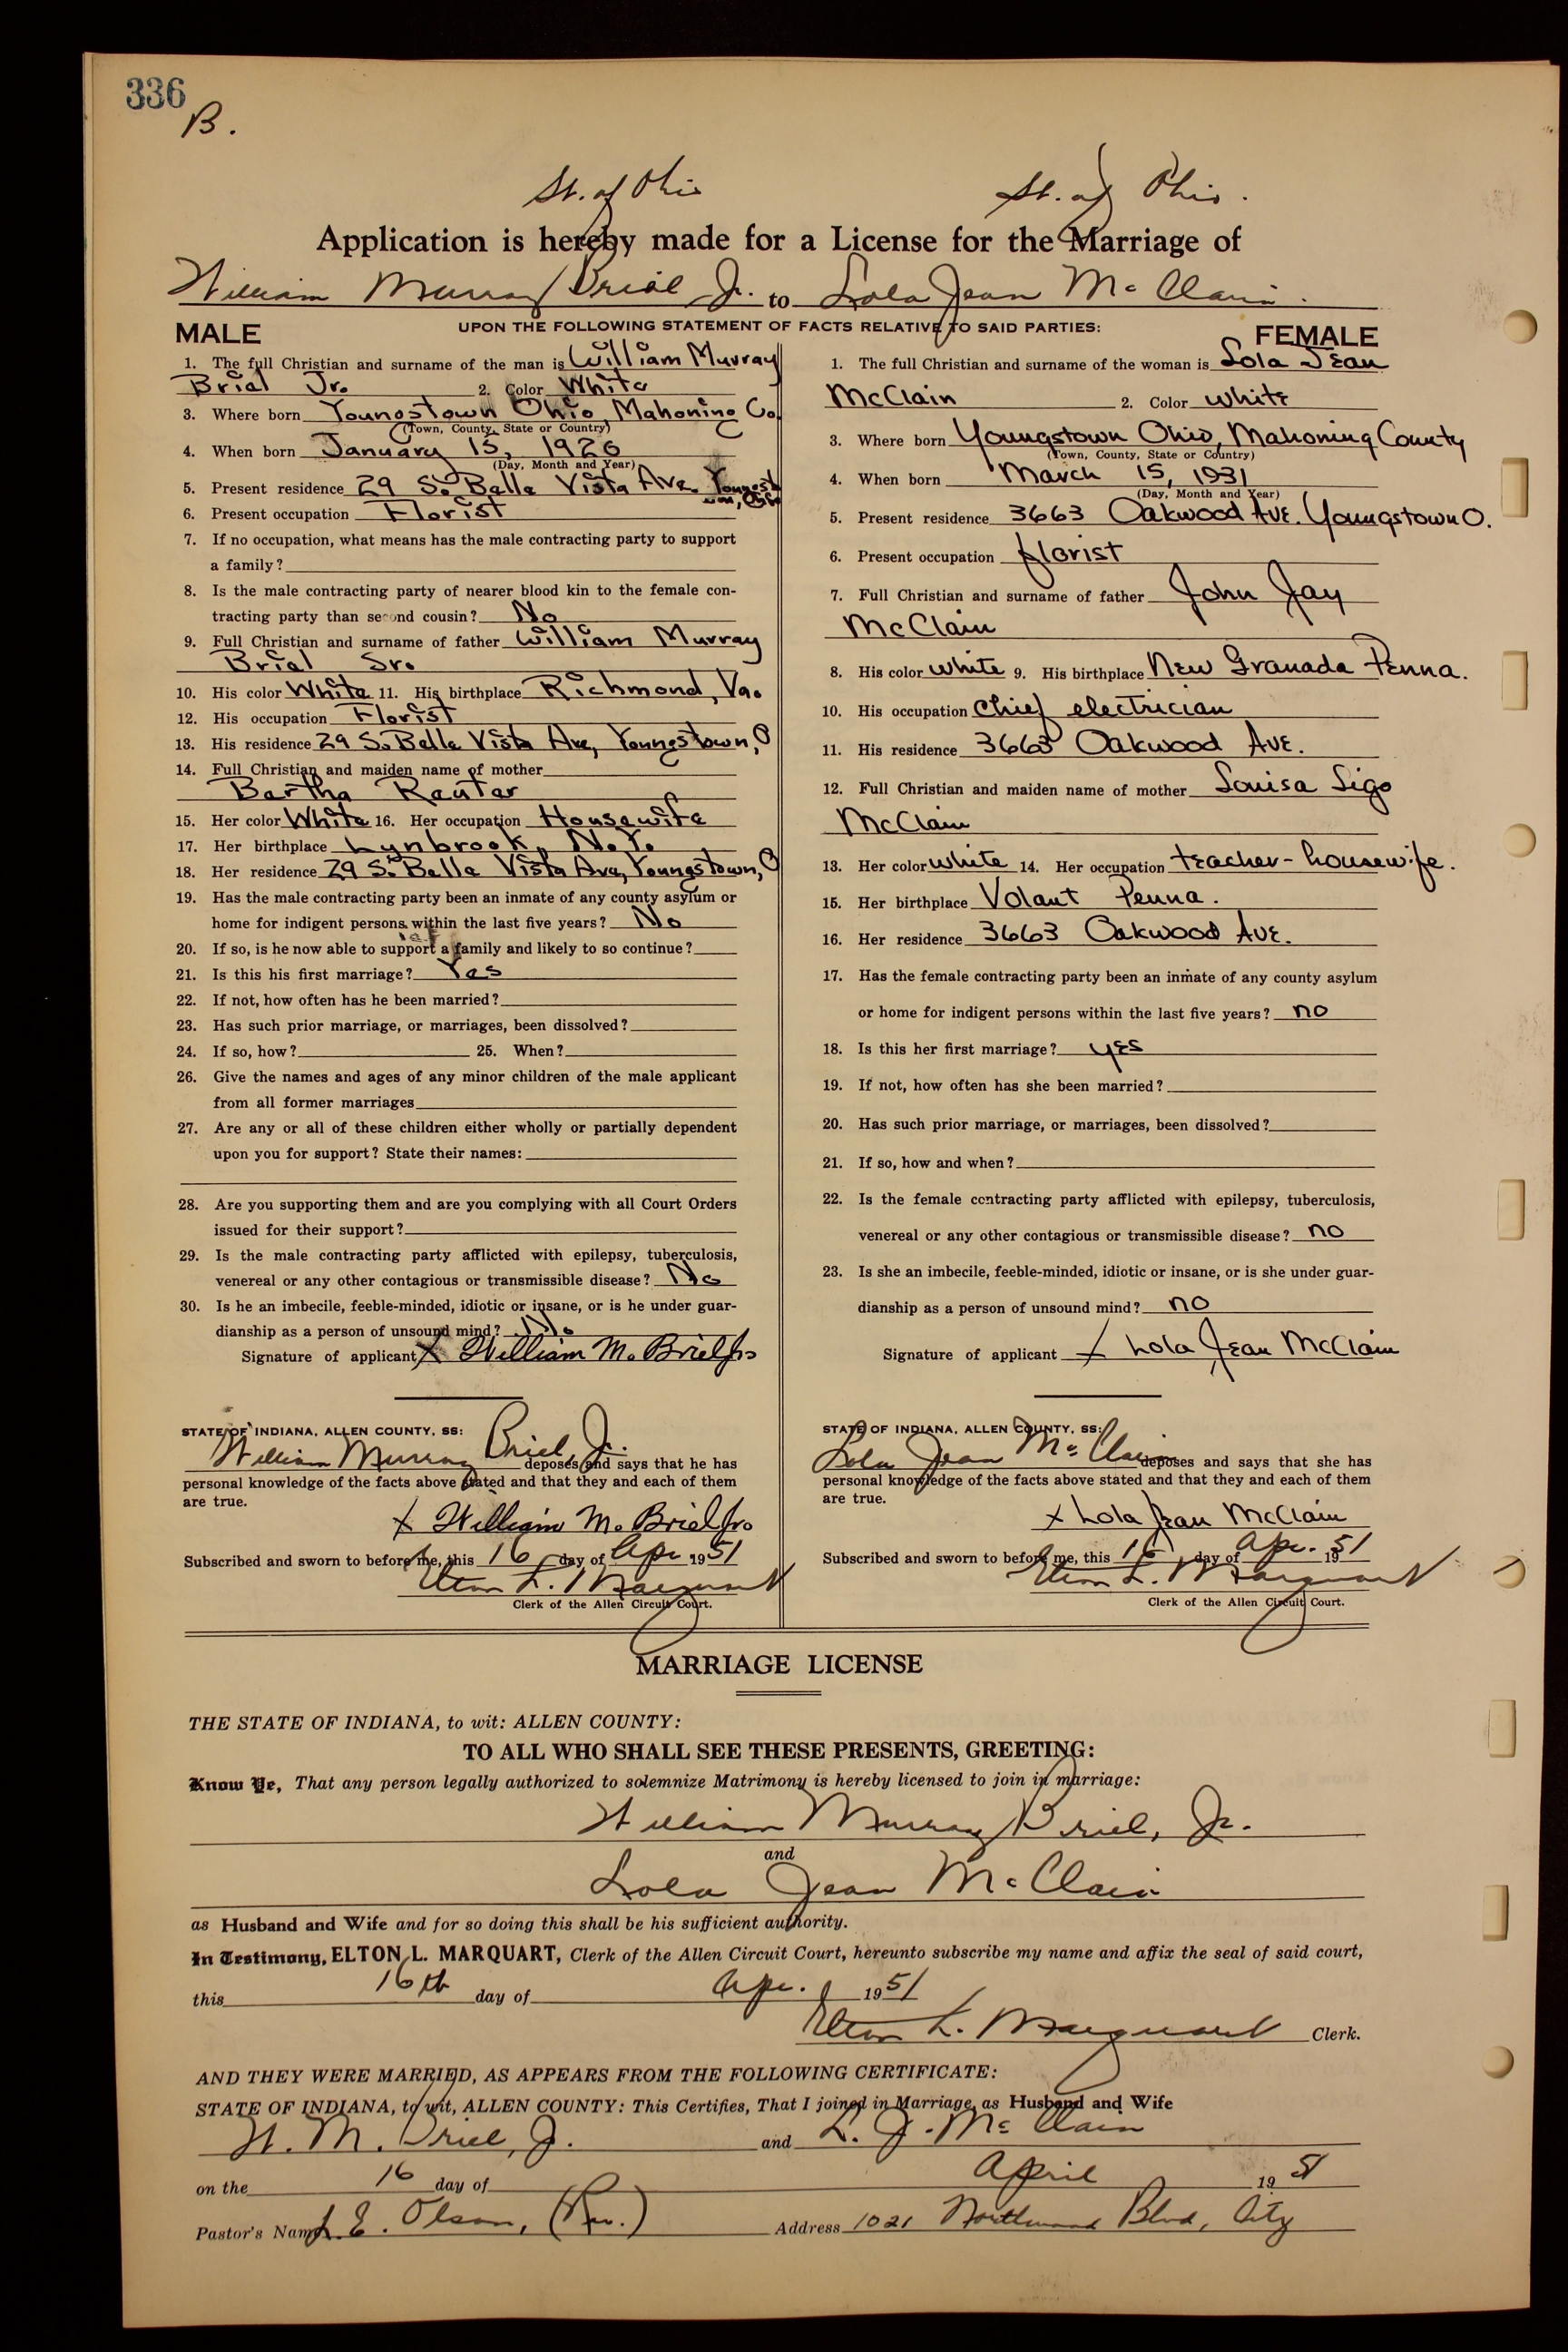 336
B.
St. of Ohio St. of Ohio.
Application is hereby made for a License for the Marriage of
William Murray Briel Jr. to Lola Jean McClain.
MALE UPON THE FOLLOWING STATEMENT OF FACTS RELATIVE TO SAID PARTIES: FEMALE
1. The full Christian and surname of the man is William Murray
Briel Jr. 2. Color White
3. Where born Youngstown Ohio, Mahoning Co.
(Town, County, State or Country)
4. When born January 15, 1926
(Day, Month and Year)
5. Present residence 29 S. Belle Vista Ave. Youngst
own, Ohio
6. Present occupation Florist
7. If no occupation, what means has the male contracting party to support
a family?
8. Is the male contracting party of nearer blood kin to the female con-
tracting party than second cousin? No
9. Full Christian and surname of father William Murray
Briel Sr.
10. His color White 11. His birthplace Richmond, Va.
12. His occupation Florist
13. His residence 29 S. Belle Vista Ave, Youngstown, O
14. Full Christian and maiden name of mother
Bertha Reuter
15. Her color White 16. Her occupation Housewife
17. Her birthplace Lynbrook, N.Y.
18. Her residence 29 S. Belle Vista Ave, Youngstown, O
19. Has the male contracting party been an inmate of any county asylum or
home for indigent persons within the last five years? No
20. If so, is he now able to support a family and likely to so continue?
21. Is this his first marriage? Yes
22. If not, how often has he been married?
23. Has such prior marriage, or marriages, been dissolved?
24. If so, how? 25. When?
26. Give the names and ages of any minor children of the male applicant
from all former marriages
27. Are any or all of these children either wholly or partially dependent
upon you for support? State their names:
28. Are you supporting them and are you complying with all Court Orders
issued for their support?
29. Is the male contracting party afflicted with epilepsy, tuberculosis,
venereal or any other contagious or transmissible disease? No
30. Is he an imbecile, feeble-minded, idiotic or insane, or is he under guar-
dianship as a person of unsound mind? No
Signature of applicant x William M. Briel Jr.
STATE OF INDIANA, ALLEN COUNTY, SS:
William Murray Briel, Jr. deposes and says that he has
personal knowledge of the facts above stated and that they and each of them
are true.
x William M. Briel Jr.
Subscribed and sworn to before me, this 16 day of Apr 1951
Elton L. Marquart
Clerk of the Allen Circuit Court.
1. The full Christian and surname of the woman is Lola Jean
McClain 2. Color white
3. Where born Youngstown Ohio, Mahoning County
(Town, County, State or Country)
4. When born March 15, 1931
(Day, Month and Year)
5. Present residence 3663 Oakwood Ave. Youngstown O.
6. Present occupation florist
7. Full Christian and surname of father John Jay
McClain
8. His color white 9. His birthplace New Granada Penna.
10. His occupation chief electrician
11. His residence 3663 Oakwood Ave.
12. Full Christian and maiden name of mother Louisa Sigo
McClain
13. Her color white 14. Her occupation teacher-housewife.
15. Her birthplace Volant Penna.
16. Her residence 3663 Oakwood Ave.
17. Has the female contracting party been an inmate of any county asylum
or home for indigent persons within the last five years? no
18. Is this her first marriage? yes
19. If not, how often has she been married?
20. Has such prior marriage, or marriages, been dissolved?
21. If so, how and when?
22. Is the female contracting party afflicted with epilepsy, tuberculosis,
venereal or any other contagious or transmissible disease? no
23. Is she an imbecile, feeble-minded, idiotic or insane, or is she under guar-
dianship as a person of unsound mind? no
Signature of applicant x Lola Jean McClain
STATE OF INDIANA, ALLEN COUNTY, SS:
Lola Jean McClain deposes and says that she has
personal knowledge of the facts above stated and that they and each of them
are true.
x Lola Jean McClain
Subscribed and sworn to before me, this 16 day of Apr. 1951
Elton L. Marquart
Clerk of the Allen Circuit Court.
MARRIAGE LICENSE
THE STATE OF INDIANA, to wit: ALLEN COUNTY:
TO ALL WHO SHALL SEE THESE PRESENTS, GREETING:
Know Ye, That any person legally authorized to solemnize Matrimony is hereby licensed to join in marriage:
William Murray Briel, Jr.
and
Lola Jean McClain
as Husband and Wife and for so doing this shall be his sufficient authority.
In Testimony, ELTON L. MARQUART, Clerk of the Allen Circuit Court, hereunto subscribe my name and affix the seal of said court,
this 16th day of Apr. 1951
Elton L. Marquart Clerk.
AND THEY WERE MARRIED, AS APPEARS FROM THE FOLLOWING CERTIFICATE:
STATE OF INDIANA, to wit, ALLEN COUNTY: This Certifies, That I joined in Marriage as Husband and Wife
W. M. Briel, Jr. and L. J. McClain
on the 16 day of April 1951
Pastor's Name L. E. Olson, (Rev.) Address 1021 Northwood Blvd, City